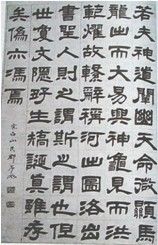 若夫神道闡幽天命微顯馬
龍出而大易興神龜見而洪
範燿故繫辭稱河出圖洛出
書聖人則之斯之謂也但
世夐文隱好生矯誕真雖存
矣偽亦馮焉